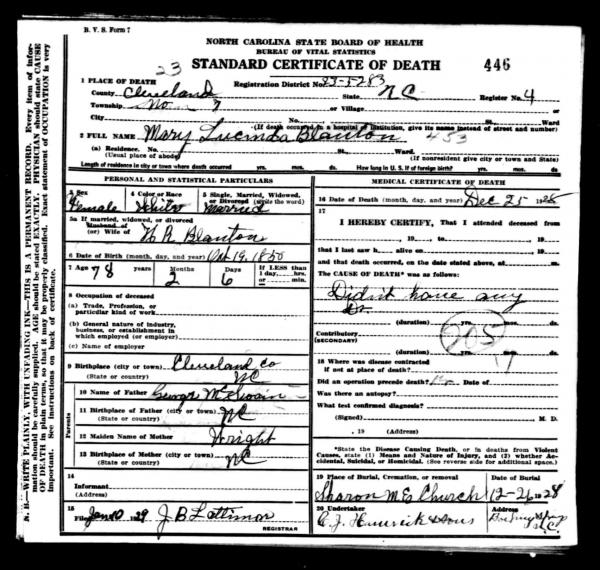 B. V. S. Form 7
NORTH CAROLINA STATE BOARD OF HEALTH
BUREAU OF VITAL STATISTICS
STANDARD CERTIFICATE OF DEATH 446
23
1 PLACE OF DEATH Registration District No. 23-5283
County Cleveland State N C Register No. 4
Township No 7 or Village
City No. St. Ward.
(If death occurred in a hospital or institution, give its name instead of street and number)
2 FULL NAME Mary Lucinda Blanton 453
(a) Residence. No. St. Ward.
(Usual place of abode) (If nonresident give city or town and State)
Length of residence in city or town where death occurred yrs. mos. ds. How long in U. S. if of foreign birth? yrs. mos. ds.
PERSONAL AND STATISTICAL PARTICULARS
3 Sex 4 Color or Race 5 Single, Married, Widowed, or Divorced (write the word)
Female White Married
5a If married, widowed, or divorced
Husband of
(or) Wife of W R Blanton
6 Date of Birth (month, day, and year) Oct 19, 1850
7 Age years Months Days If LESS than 1 day, hrs. or min.
78 2 6
8 Occupation of deceased
(a) Trade, Profession, or particular kind of work
(b) General nature of industry, business, or establishment in which employed (or employer)
(c) Name of employer
9 Birthplace (city or town) Cleveland Co
(State or country) NC
Parents
10 Name of Father George McSwain
11 Birthplace of Father (city or town) NC
(State or country)
12 Maiden Name of Mother Wright
13 Birthplace of Mother (city or town)
(State or country) NC
14
Informant
(Address)
15
Filed Jan 10 1929 J B Lattimore
REGISTRAR
MEDICAL CERTIFICATE OF DEATH
16 Date of Death (month, day, and year) Dec 25 1928
17
I HEREBY CERTIFY, That I attended deceased from
, 19 , to , 19
that I last saw h alive on , 19
and that death occurred, on the date stated above, at m.
The CAUSE OF DEATH* was as follows:
Didn't have any
Dr.
(duration) yrs. mos. ds.
Contributory 205
(SECONDARY)
(duration) yrs. mos. ds.
18 Where was disease contracted
if not at place of death?
Did an operation precede death? no Date of
Was there an autopsy?
What test confirmed diagnosis?
(Signed) M. D.
, 19 (Address)
*State the Disease Causing Death, or in deaths from Violent Causes, state (1) Means and Nature of Injury, and (2) whether Accidental, Suicidal, or Homicidal. (See reverse side for additional space.)
19 Place of Burial, Cremation, or removal Date of Burial
Sharon M E Church 12-26 1928
20 Undertaker Address
N. B.—WRITE PLAINLY, WITH UNFADING INK—THIS IS A PERMANENT RECORD. Every item of information should be carefully supplied. AGE should be stated EXACTLY. PHYSICIAN should state CAUSE OF DEATH in plain terms, so that it may be properly classified. Exact statement of OCCUPATION is very important. See instructions on back of certificate.